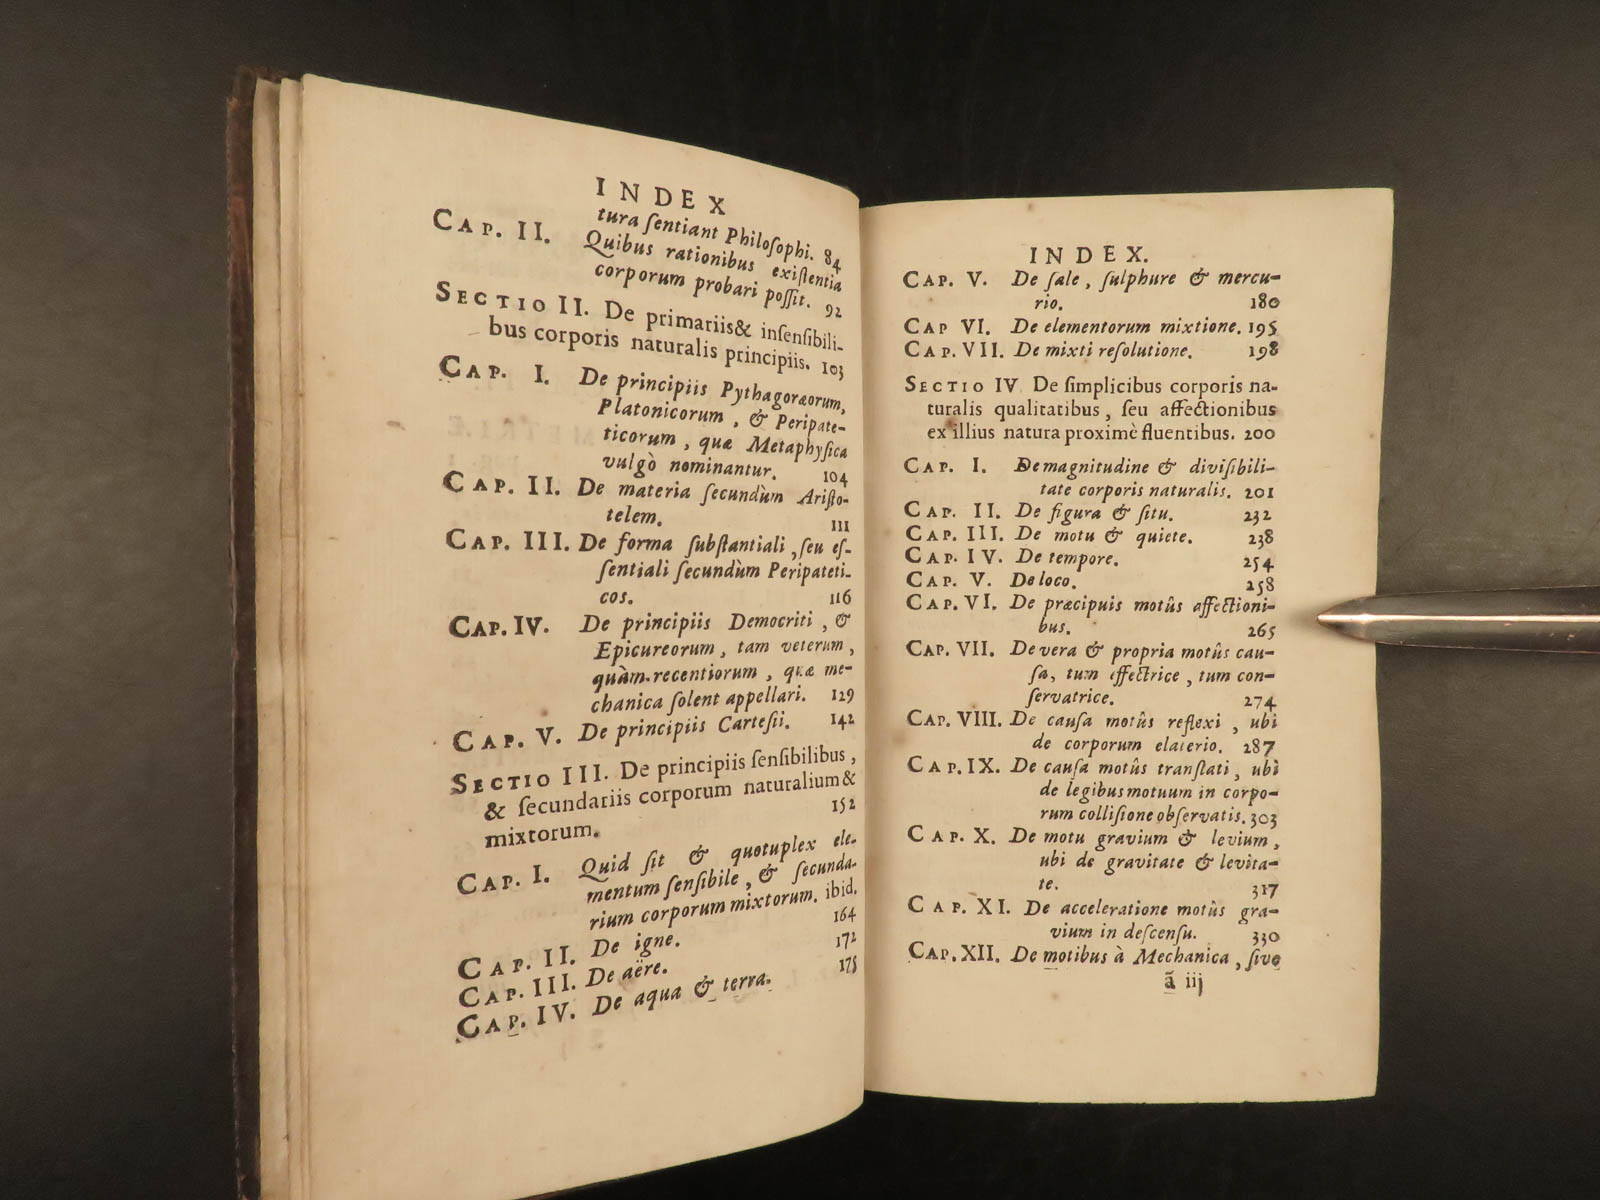 INDEX
tura ſentiant Philoſophi. 84
CAP. II. Quibus rationibus exiſtentia
corporum probari poſſit. 92
SECTIO II. De primariis & inſenſibili-
bus corporis naturalis principiis. 103
CAP. I. De principiis Pythagoræorum,
Platonicorum, & Peripate-
ticorum, quæ Metaphyſica
vulgò nominantur. 104
CAP. II. De materia ſecundùm Ariſto-
telem. 111
CAP. III. De forma ſubſtantiali, ſeu eſ-
ſentiali ſecundùm Peripateti-
cos. 116
CAP. IV. De principiis Democriti, &
Epicureorum, tam veterum,
quàm recentiorum, quæ me-
chanica ſolent appellari. 129
CAP. V. De principiis Carteſii. 142
SECTIO III. De principiis ſenſibilibus,
& ſecundariis corporum naturalium &
mixtorum. 152
CAP. I. Quid ſit & quotuplex ele-
mentum ſenſibile, & ſecunda-
rium corporum mixtorum. ibid.
CAP. II. De igne. 164
CAP. III. De aëre. 172
CAP. IV. De aqua & terra. 175
INDEX.
CAP. V. De ſale, ſulphure & mercu-
rio. 180
CAP VI. De elementorum mixtione. 195
CAP. VII. De mixti reſolutione. 198
SECTIO IV. De ſimplicibus corporis na-
turalis qualitatibus, ſeu affectionibus
ex illius natura proximè fluentibus. 200
CAP. I. De magnitudine & diviſibili-
tate corporis naturalis. 201
CAP. II. De figura & ſitu. 232
CAP. III. De motu & quiete. 238
CAP. IV. De tempore. 254
CAP. V. De loco. 258
CAP. VI. De præcipuis motûs affectioni-
bus. 265
CAP. VII. De vera & propria motûs cau-
ſa, tum effectrice, tum con-
ſervatrice. 274
CAP. VIII. De cauſa motûs reflexi, ubi
de corporum elaterio. 287
CAP. IX. De cauſa motûs tranſlati, ubi
de legibus motuum in corpo-
rum colliſione obſervatis. 303
CAP. X. De motu gravium & levium,
ubi de gravitate & levita-
te. 317
CAP. XI. De acceleratione motûs gra-
vium in deſcenſu. 330
CAP. XII. De motibus à Mechanica, ſive
ã iij